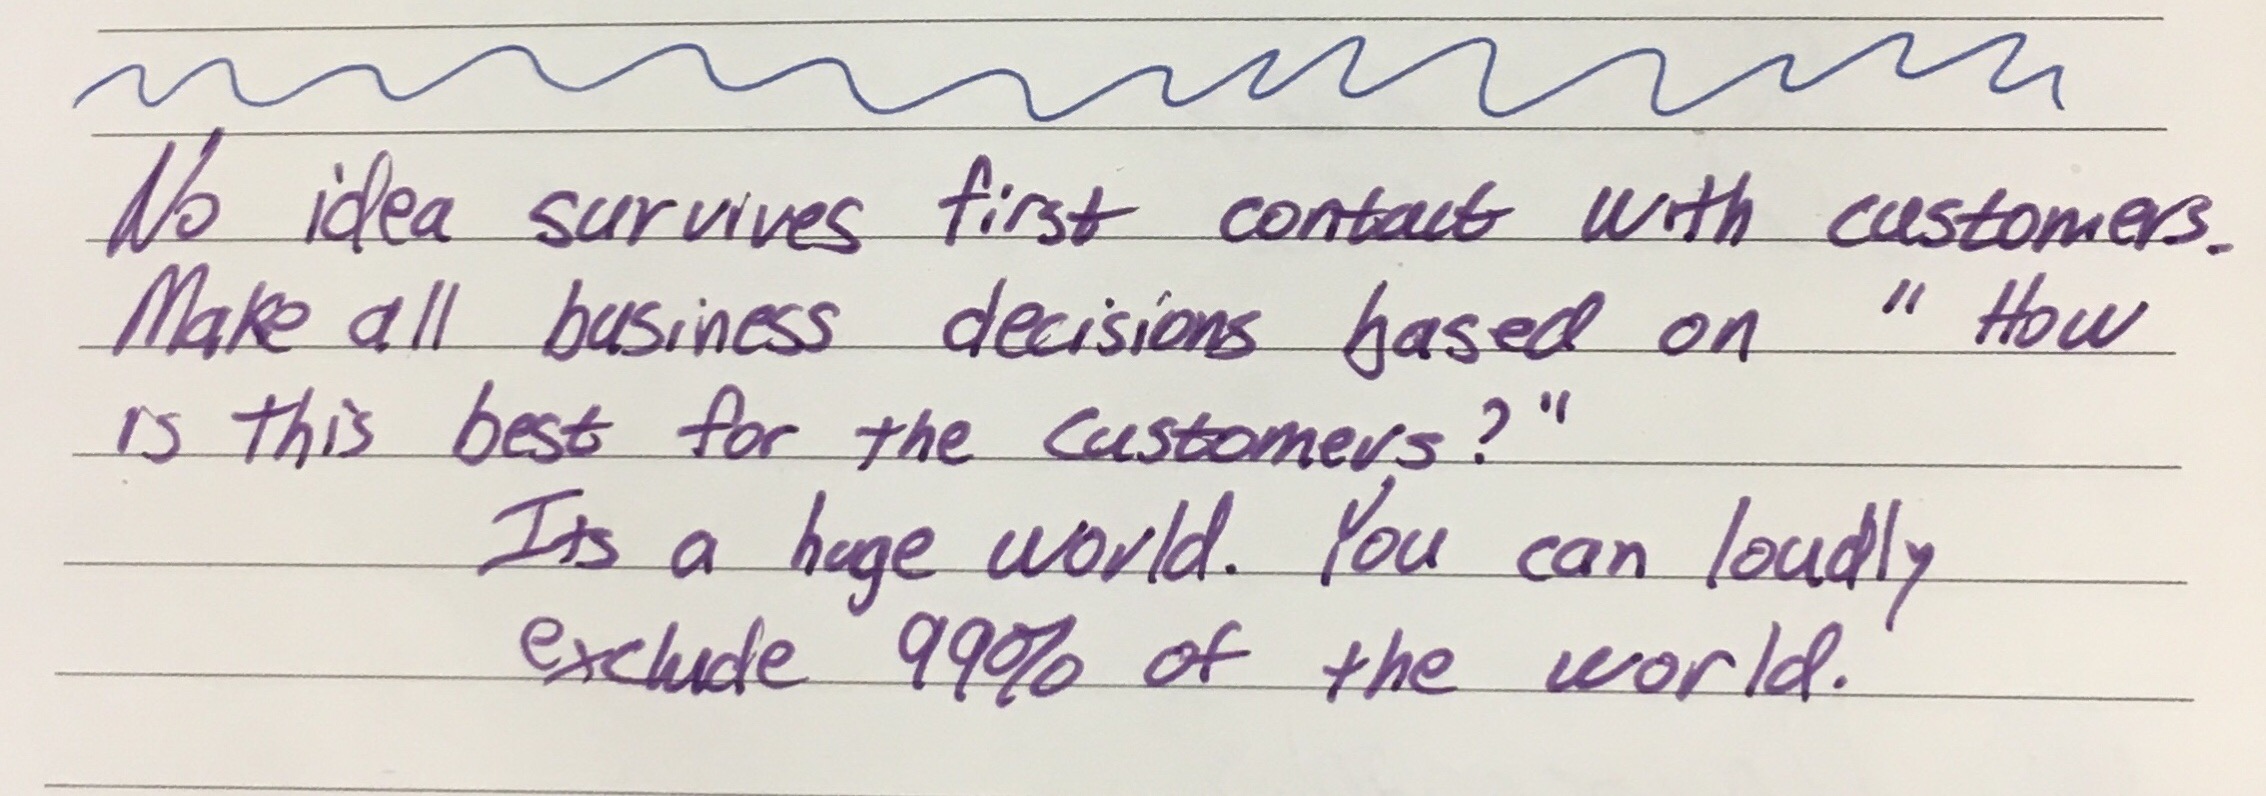 No idea survives first contact with customers.
Make all business decisions based on "How
is this best for the customers?"
Its a huge world. You can loudly
exclude 99% of the world.